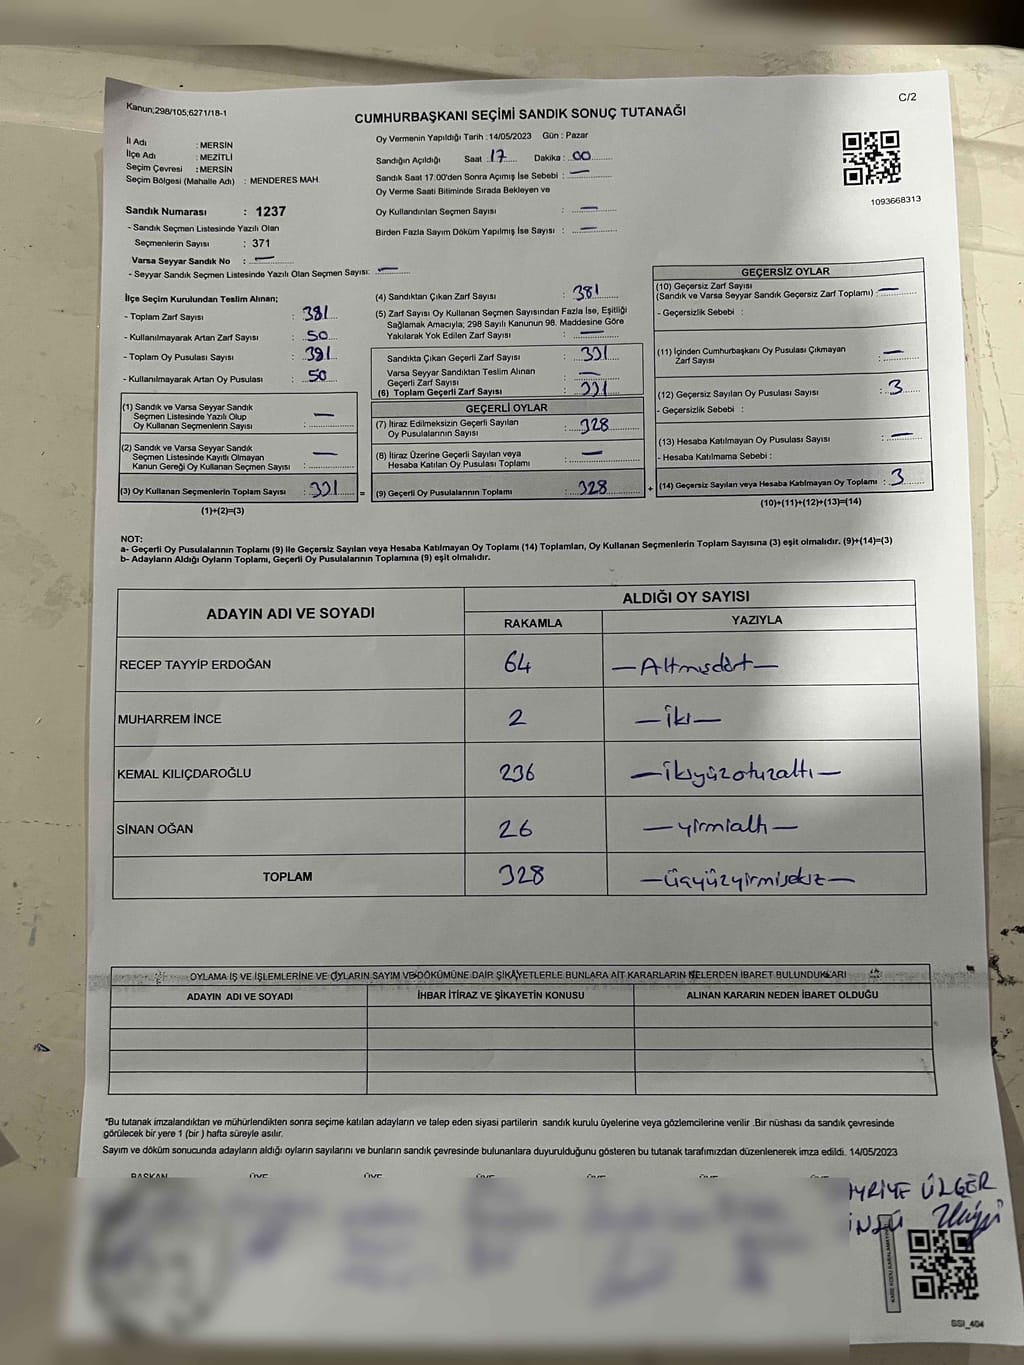 Kanun;298/105;6271/18-1
C/2
CUMHURBAŞKANI SEÇİMİ SANDIK SONUÇ TUTANAĞI
İl Adı : MERSİN
İlçe Adı : MEZİTLİ
Seçim Çevresi : MERSİN
Seçim Bölgesi (Mahalle Adı) : MENDERES MAH.
Oy Vermenin Yapıldığı Tarih : 14/05/2023 Gün : Pazar
Sandığın Açıldığı Saat : 17 Dakika : 00
Sandık Saat 17.00'den Sonra Açımış İse Sebebi : —
Oy Verme Saati Bitiminde Sırada Bekleyen ve
Oy Kullandırılan Seçmen Sayısı : —
Birden Fazla Sayım Döküm Yapılmış İse Sayısı : —
1093668313
Sandık Numarası : 1237
- Sandık Seçmen Listesinde Yazılı Olan
Seçmenlerin Sayısı : 371
Varsa Seyyar Sandık No : —
- Seyyar Sandık Seçmen Listesinde Yazılı Olan Seçmen Sayısı: —
İlçe Seçim Kurulundan Teslim Alınan;
- Toplam Zarf Sayısı : 381
- Kullanılmayarak Artan Zarf Sayısı : 50
- Toplam Oy Pusulası Sayısı : 381
- Kullanılmayarak Artan Oy Pusulası : 50
(1) Sandık ve Varsa Seyyar Sandık
Seçmen Listesinde Yazılı Olup
Oy Kullanan Seçmenlerin Sayısı : —
(2) Sandık ve Varsa Seyyar Sandık
Seçmen Listesinde Kayıtlı Olmayan
Kanun Gereği Oy Kullanan Seçmen Sayısı : —
(3) Oy Kullanan Seçmenlerin Toplam Sayısı : 331 =
(1)+(2)=(3)
(4) Sandıktan Çıkan Zarf Sayısı : 381
(5) Zarf Sayısı Oy Kullanan Seçmen Sayısından Fazla İse, Eşitliği
Sağlamak Amacıyla; 298 Sayılı Kanunun 98. Maddesine Göre
Yakılarak Yok Edilen Zarf Sayısı : —
Sandıkta Çıkan Geçerli Zarf Sayısı : 331
Varsa Seyyar Sandıktan Teslim Alınan
Geçerli Zarf Sayısı : —
(6) Toplam Geçerli Zarf Sayısı : 331
GEÇERLİ OYLAR
(7) İtiraz Edilmeksizin Geçerli Sayılan
Oy Pusulalarının Sayısı : 328
(8) İtiraz Üzerine Geçerli Sayılan veya
Hesaba Katılan Oy Pusulası Toplamı : —
(9) Geçerli Oy Pusulalarının Toplamı : 328 +
GEÇERSİZ OYLAR
(10) Geçersiz Zarf Sayısı
(Sandık ve Varsa Seyyar Sandık Geçersiz Zarf Toplamı) : —
- Geçersizlik Sebebi :
(11) İçinden Cumhurbaşkanı Oy Pusulası Çıkmayan
Zarf Sayısı : —
(12) Geçersiz Sayılan Oy Pusulası Sayısı : 3
- Geçersizlik Sebebi :
(13) Hesaba Katılmayan Oy Pusulası Sayısı : —
- Hesaba Katılmama Sebebi :
(14) Geçersiz Sayılan veya Hesaba Katılmayan Oy Toplamı : 3
(10)+(11)+(12)+(13)=(14)
NOT:
a- Geçerli Oy Pusulalarının Toplamı (9) ile Geçersiz Sayılan veya Hesaba Katılmayan Oy Toplamı (14) Toplamları, Oy Kullanan Seçmenlerin Toplam Sayısına (3) eşit olmalıdır. (9)+(14)=(3)
b- Adayların Aldığı Oyların Toplamı, Geçerli Oy Pusulalarının Toplamına (9) eşit olmalıdır.
ADAYIN ADI VE SOYADI ALDIĞI OY SAYISI
RAKAMLA YAZIYLA
RECEP TAYYİP ERDOĞAN 64 — Altmışdört —
MUHARREM İNCE 2 — İki —
KEMAL KILIÇDAROĞLU 236 — İkiyüzotuzaltı —
SİNAN OĞAN 26 — yirmialtı —
TOPLAM 328 — üçyüzyirmisekiz —
OYLAMA İŞ VE İŞLEMLERİNE VE OYLARIN SAYIM VE DÖKÜMÜNE DAİR ŞİKÂYETLERLE BUNLARA AİT KARARLARIN NELERDEN İBARET BULUNDUKLARI
ADAYIN ADI VE SOYADI İHBAR İTİRAZ VE ŞİKAYETİN KONUSU ALINAN KARARIN NEDEN İBARET OLDUĞU
*Bu tutanak imzalandıktan ve mühürlendikten sonra seçime katılan adayların ve talep eden siyasi partilerin sandık kurulu üyelerine veya gözlemcilerine verilir .Bir nüshası da sandık çevresinde
görülecek bir yere 1 (bir ) hafta süreyle asılır.
Sayım ve döküm sonucunda adayların aldığı oyların sayılarını ve bunların sandık çevresinde bulunanlara duyurulduğunu gösteren bu tutanak tarafımızdan düzenlenerek imza edildi. 14/05/2023
BAŞKAN ÜYE ÜYE ÜYE ÜYE ÜYE
ÜLGER
SSI_404